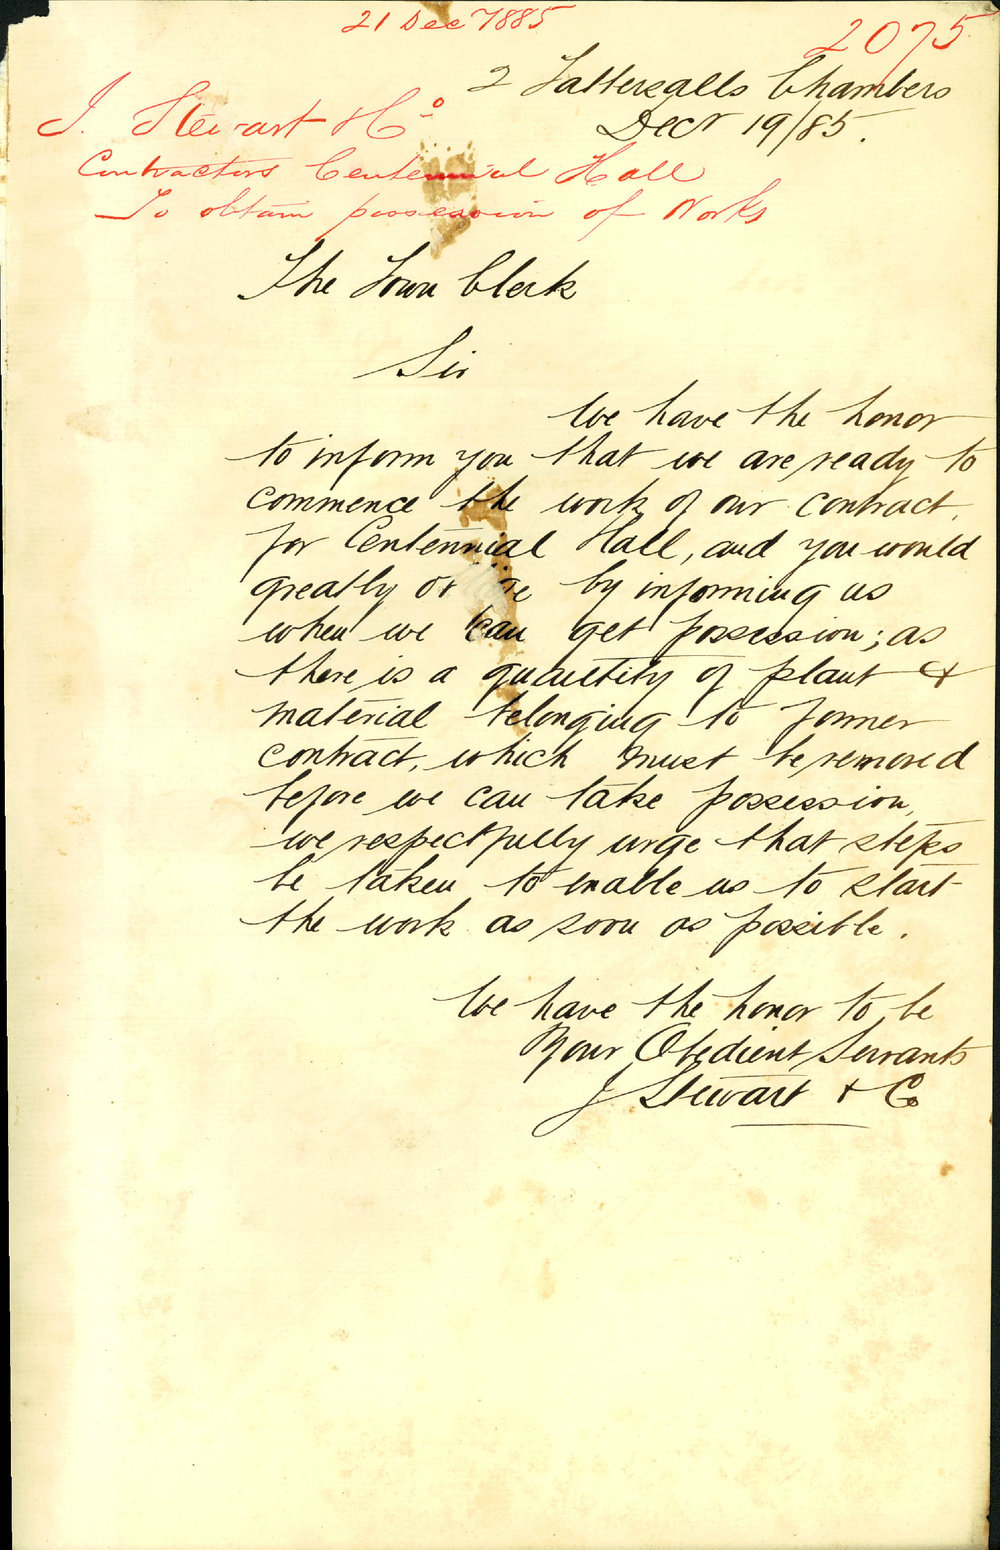 21 Dec 1885
2075
2 Tattersalls Chambers
Decr 19/85.
J. Stewart & Co
Contractors Centennial Hall
To obtain possession of Works
The Town Clerk
Sir
We have the honor
to inform you that we are ready to
commence the work of our contract
for Centennial Hall, and you would
greatly by informing us
when we can get possession; as
there is a quantity of plant &
material belonging to former
contract, which must be removed
before we can take possession,
we respectfully urge that steps
be taken to enable us to start
the work as soon as possible.
We have the honor to be
Your Obedient Servants
J Stewart & Co